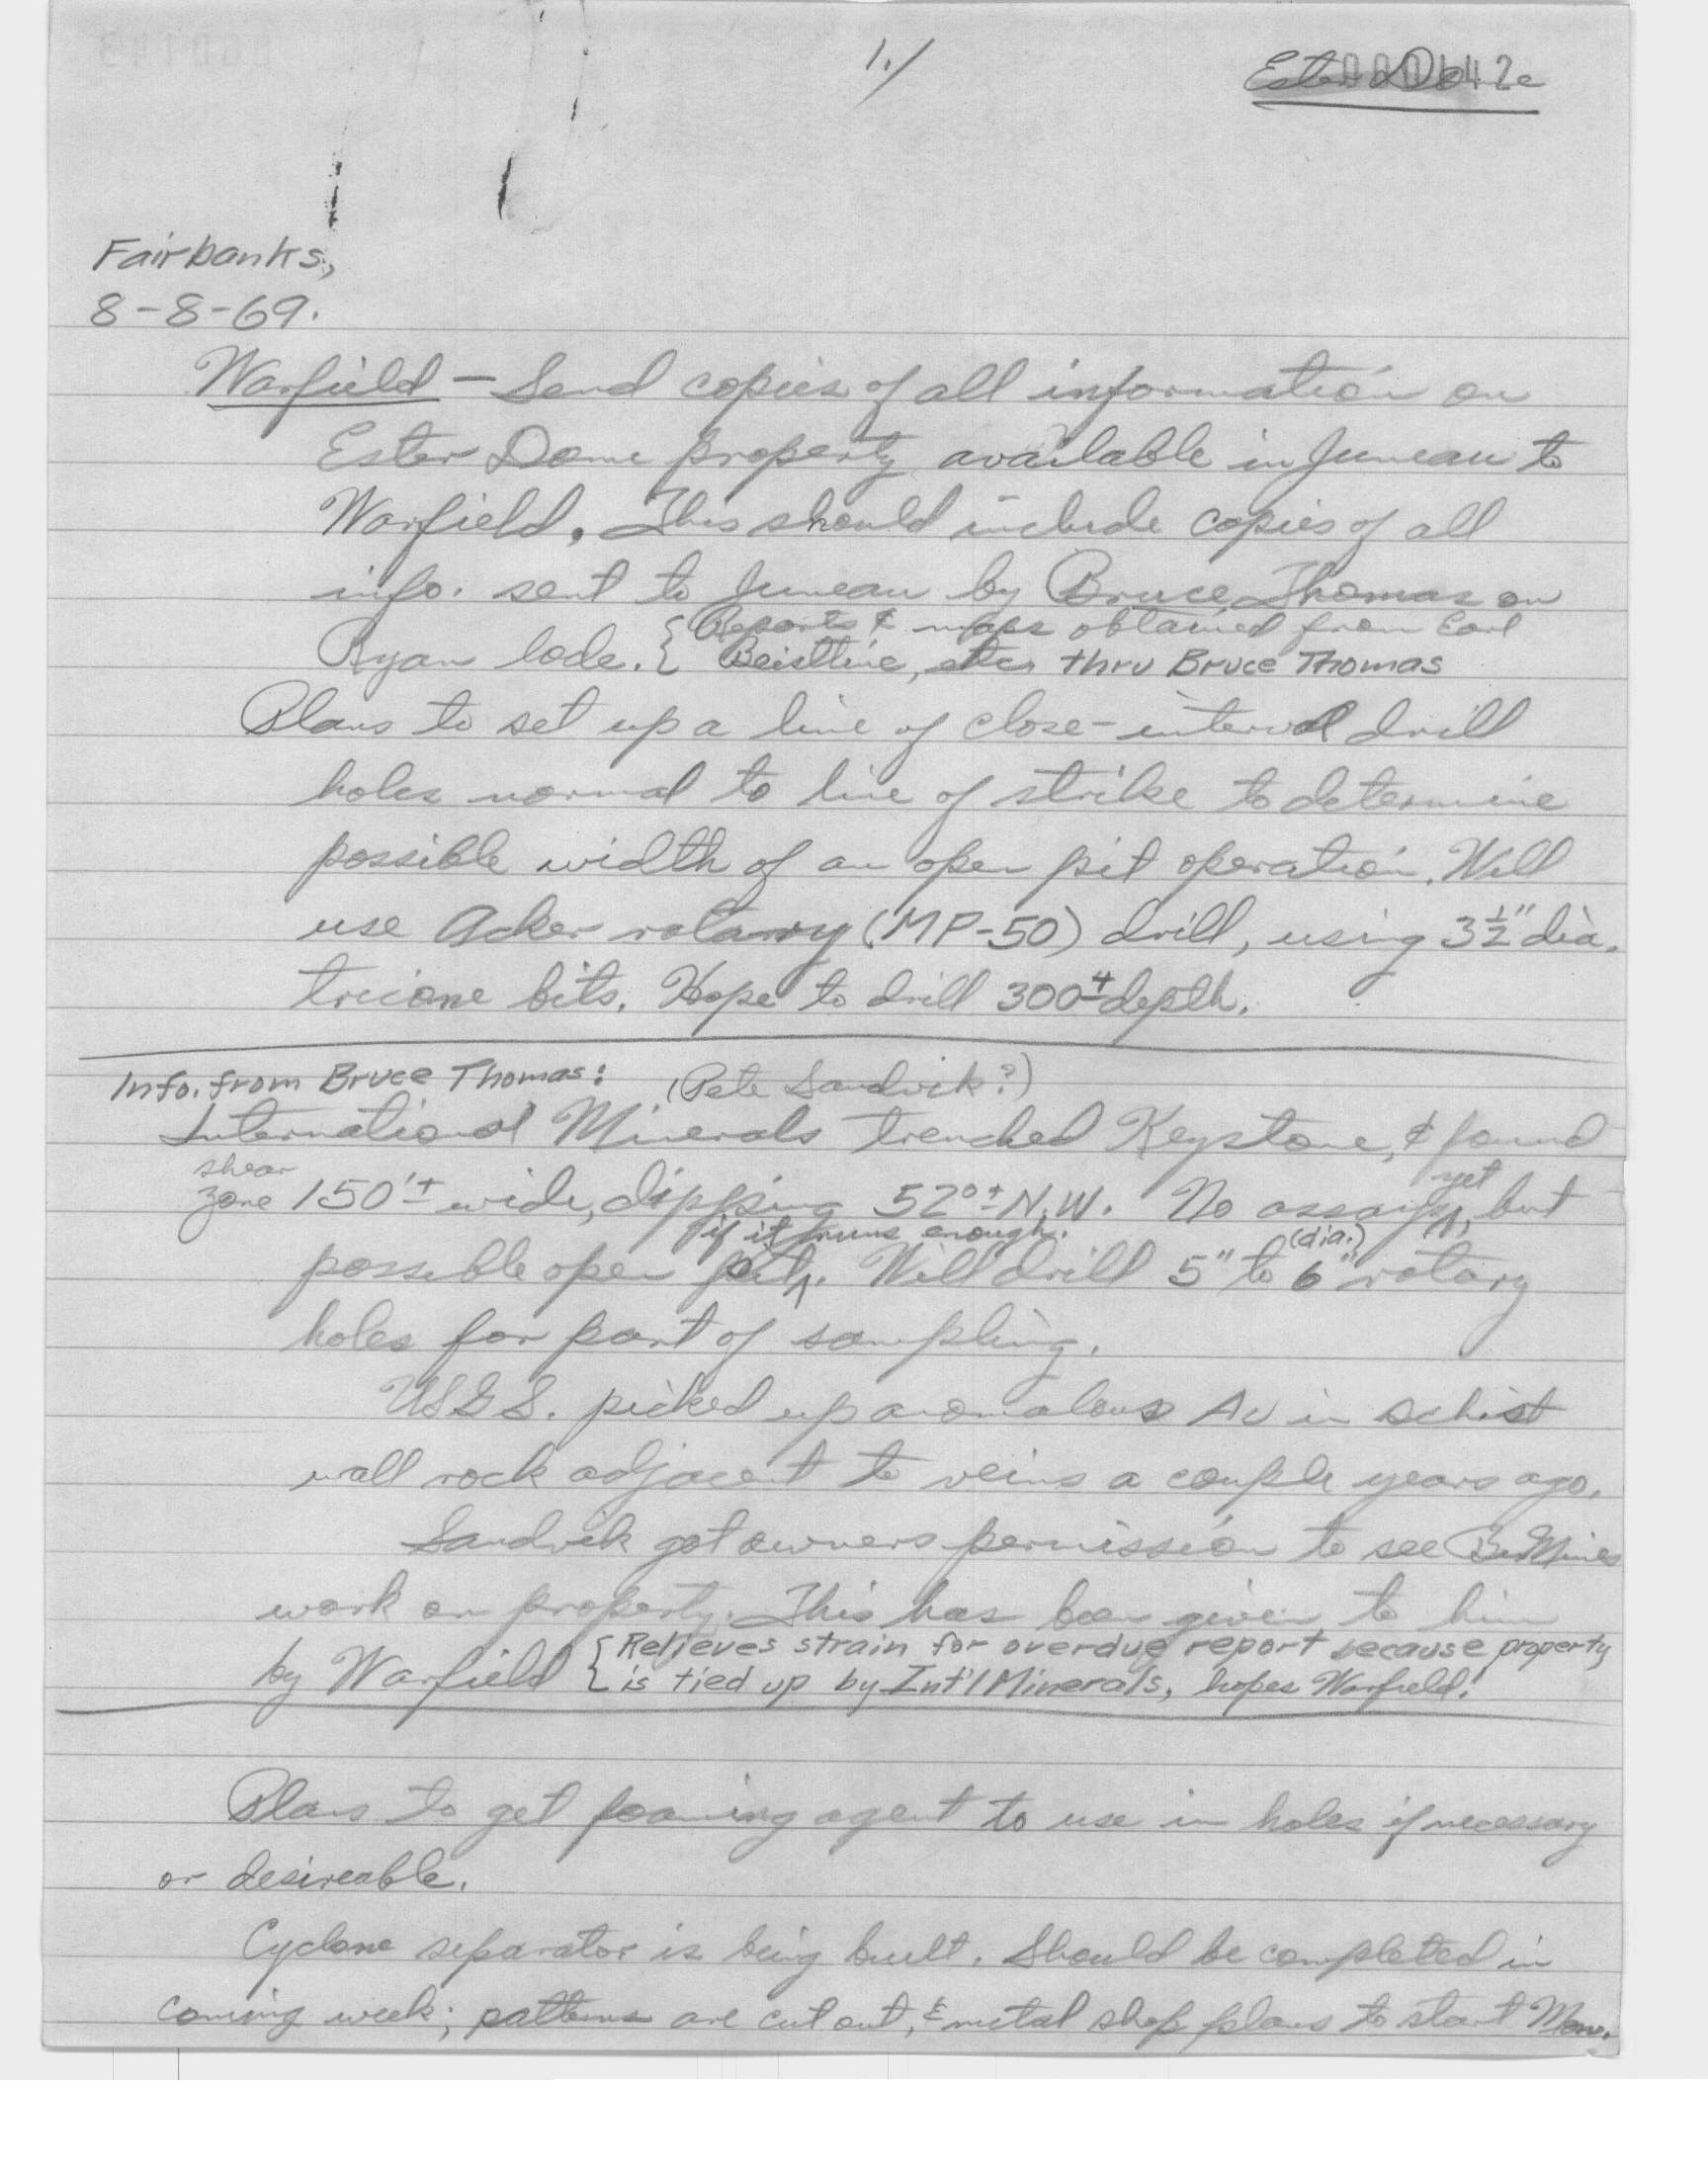 1./
Ester Dome
000142
Fairbanks,
8-8-69.
Warfield — Send copies of all information on
Ester Dome property available in Juneau to
Warfield. This should include copies of all
info. sent to Juneau by Bruce Thomas on
Ryan lode. { Reports & maps obtained from Earl
Beistline, etc. thru Bruce Thomas
Plans to set up a line of close-interval drill
holes normal to line of strike to determine
possible width of an open pit operation. Will
use Acker rotary (MP-50) drill, using 3½" dia.
tricone bits. Hope to drill 300± depth.
Info. from Bruce Thomas: (Pete Sandvik?)
International Minerals trenched Keystone, & found
shear
zone 150'± wide, dipping 52°± N.W. No assays yet, but
possible open pit if it runs enough. Will drill 5" to 6" (dia.) rotary
holes for part of sampling.
USGS. picked up anomalous Au in schist
wall rock adjacent to veins a couple years ago.
Sandvik got owners permission to see BuMines
work on property. This has been given to him
by Warfield { Relieves strain for overdue report because property
is tied up by Int'l Minerals, hopes Warfield!
Plans to get foaming agent to use in holes if necessary
or desireable.
Cyclone separator is being built. Should be completed in
coming week; patterns are cut out, & metal shop plans to start Mon.